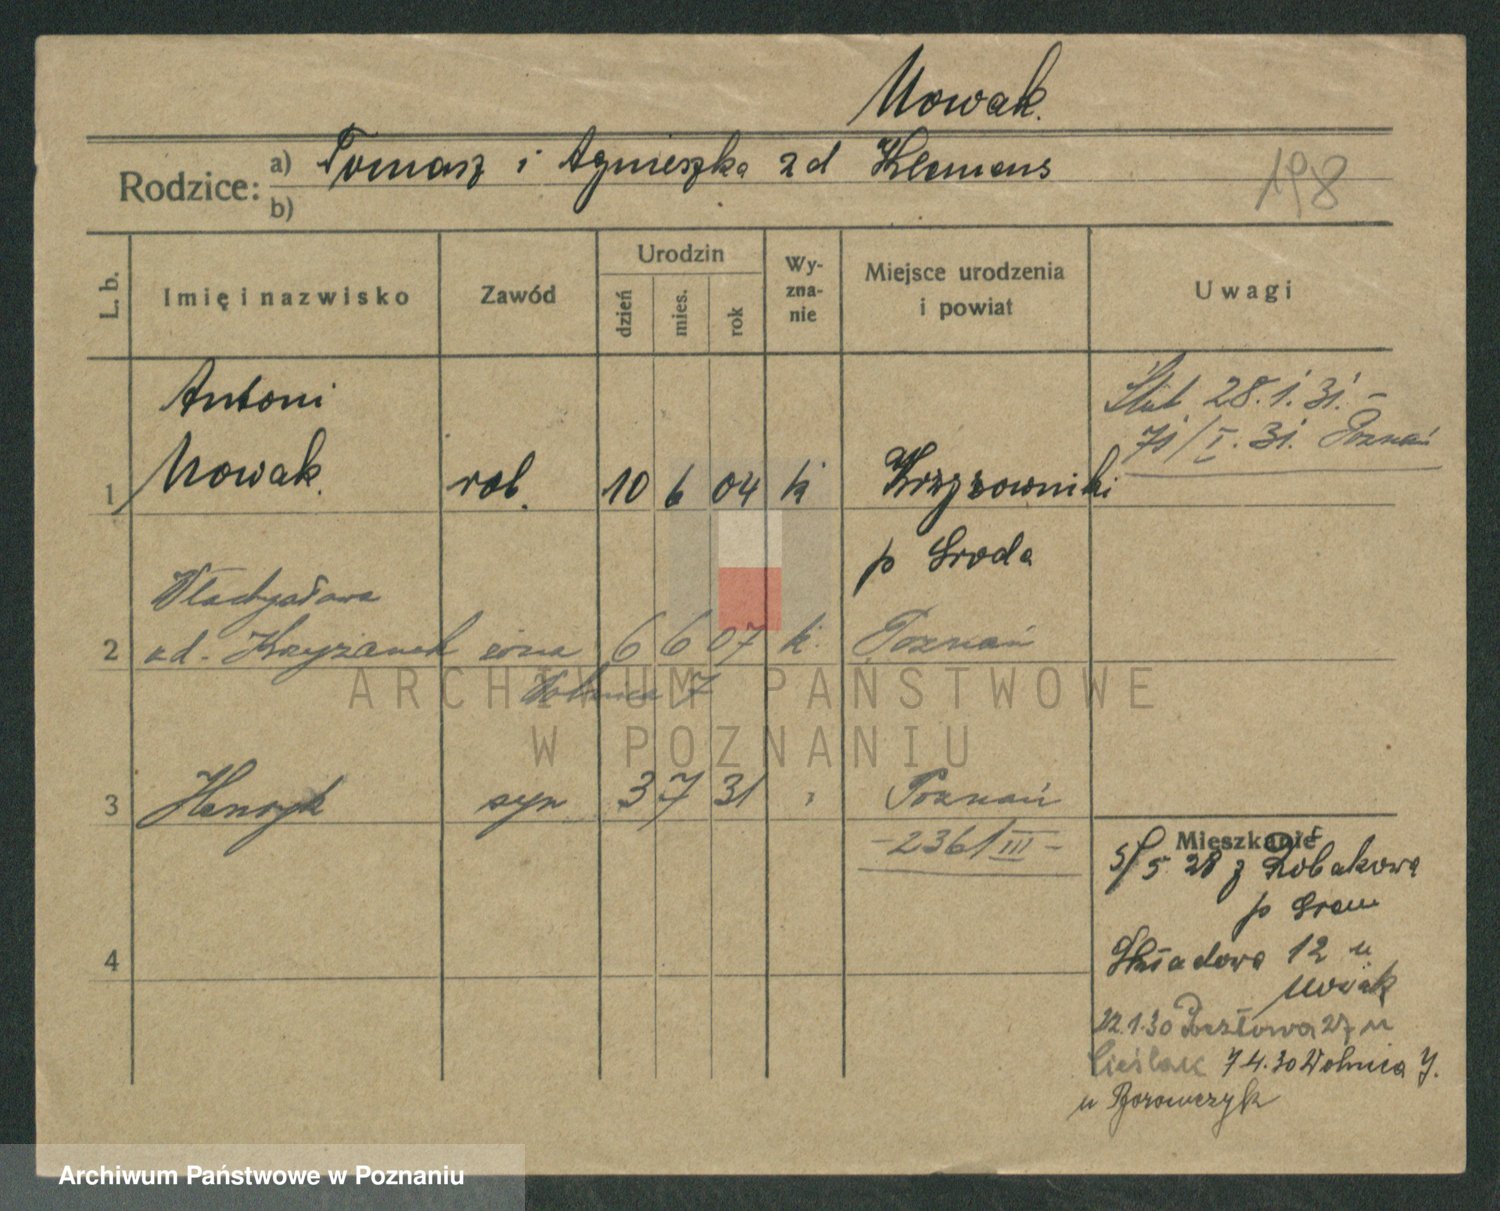 Nowak.
Rodzice: a) Tomasz i Agnieszka zd Klemens
b)
198
L. b. Imię i nazwisko Zawód Urodzin dzień mies. rok Wy-zna-nie Miejsce urodzenia i powiat Uwagi
Ślub 28.1.31. -
71/I. 31. Poznań
Antoni
1 Nowak. rob. 10 6 04 k Krzyżowniki
p Środa
Władysława
2 zd. Krzyżanek żona 6 6 07 k. Poznań
Wolnica 7
3 Henryk syn 3 7 31 Poznań
-2361 III-
4
Mieszkanie
5/5 28 z Robakowa
p Śrem
12 u
Nowak
22.1.30 Pocztowa 27 u
Cieślak 7 4.30 Wolnica 7.
u Borowczyk
ARCHIWUM PAŃSTWOWE
W POZNANIU
Archiwum Państwowe w Poznaniu